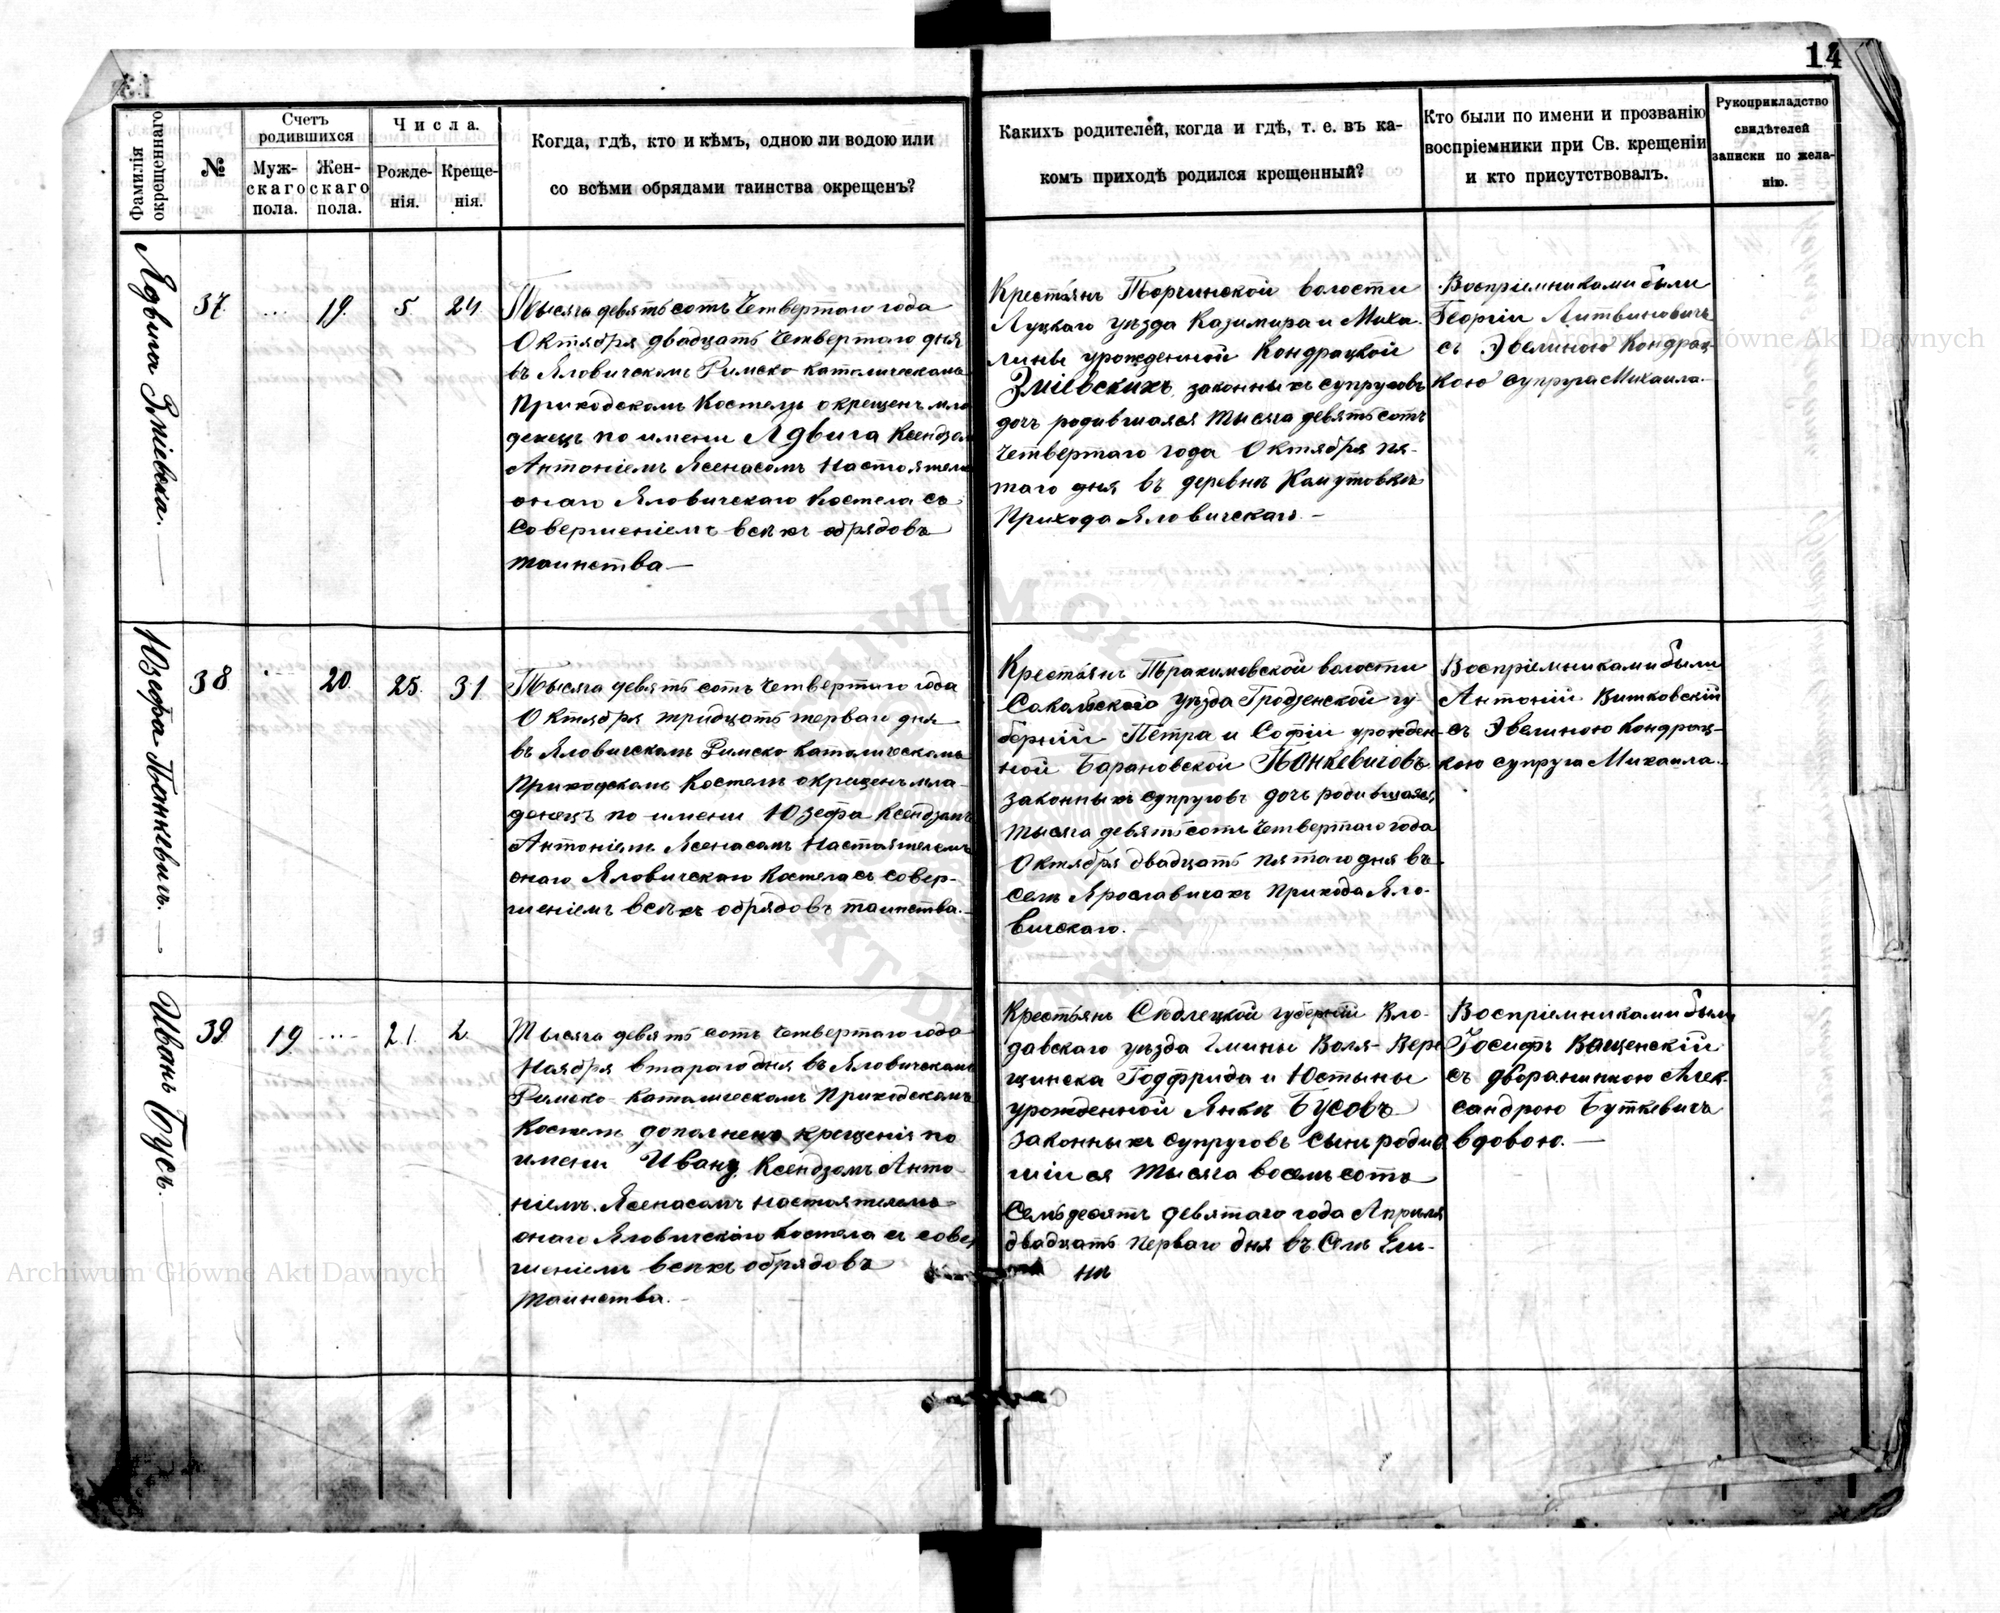 14
Фамилія окрещеннаго.
№
Счетъ родившихся
Мужскаго пола.
Женскаго пола.
Числа.
Рожденія.
Крещенія.
Когда, гдѣ, кто и кѣмъ, одною ли водою или
со всѣми обрядами таинства окрещенъ?
Какихъ родителей, когда и гдѣ, т. е. въ ка-
комъ приходѣ родился крещенный?
Кто были по имени и прозванію
воспріемники при Св. крещеніи
и кто присутствовалъ.
Рукоприкладство
свидѣтелей
записки по жела-
нію.
Ядвига Зміевска.
37. ... 19. 5. 24.
Тысяча девятьсотъ четвертаго года
Октября двадцать четвертаго дня
въ Яловичскомъ Римско Католическомъ
Приходскомъ Костелѣ окрещенъ мла
денецъ по имени Ядвига Ксендзом
Антоніемъ Ясенасомъ Настоятелем
онаго Яловичскаго Костела съ
Совершеніемъ всѣхъ обрядовъ
таинства—
Крестьянъ Торчинской волости
Луцкаго уѣзда Казимира и Миха-
лины урожденной Кондрацкой
Зміевскихъ, законныхъ супруговъ
дочь родившаяся тысяча девятьсотъ
четвертаго года Октября пя-
таго дня въ деревнѣ Хомутовкѣ
Прихода Яловичскаго.—
Воспріемниками были
Георгій Литвиновичъ
съ Эвелиною Кондрац-
кою супруга Михаила.
Юзефа Понкевичъ.—
38. ... 20. 25. 31.
Тысяча девятьсотъ четвертаго года
Октября тридцать перваго дня
въ Яловичскомъ Римско Католическомъ
Приходскомъ Костелѣ окрещенъ мла-
денецъ по имени Юзефа Ксендзомъ
Антоніемъ Ясенасомъ Настоятелемъ
онаго Яловичскаго Костела съ совер-
шеніемъ всѣхъ обрядовъ таинства.—
Крестьянъ волости
Сокольскаго уѣзда Гродненской гу-
берніи Петра и Софіи урожден-
ной Барановской Понкевичовъ
законныхъ супруговъ дочь родившаяся
тысяча девятьсотъ четвертаго года
Октября двадцать пятаго дня въ
селѣ Ярославичахъ прихода Яло-
вичскаго.
Воспріемниками были
Антоній Витковскій
съ Эвелиною Кондрац-
кою супруга Михаила.
Иванъ Бусъ.
39. 19. ... 21. 2.
Тысяча девятьсотъ четвертаго года
Ноября втораго дня въ Яловичскомъ
Римско Католическомъ Приходскомъ
Костелѣ дополнено крещенія по
имени Ивану Ксендзомъ Анто
ніемъ Ясенасомъ настоятелемъ
онаго Яловичскаго Костела съ совер
шеніемъ всѣхъ обрядовъ
таинства.—
Крестьянъ Сѣдлецкой губерніи Вло-
давскаго уѣзда Гмины Воля-Вере
щинска Годфрида и Юстыны
урожденной Янке Бусовъ
законныхъ супруговъ сынъ родив
шійся тысяча восемьсотъ
Семьдесятъ девятаго года Апрѣля
двадцать перваго дня въ Селѣ
Воспріемниками были
Іосифъ Ващенскій
съ дворянинкою Алек-
сандрою Буткевичъ
вдовою.—
Archiwum Główne Akt Dawnych
Archiwum Główne Akt Dawnych
ARCHIWUM GŁÓWNE AKT DAWNYCH